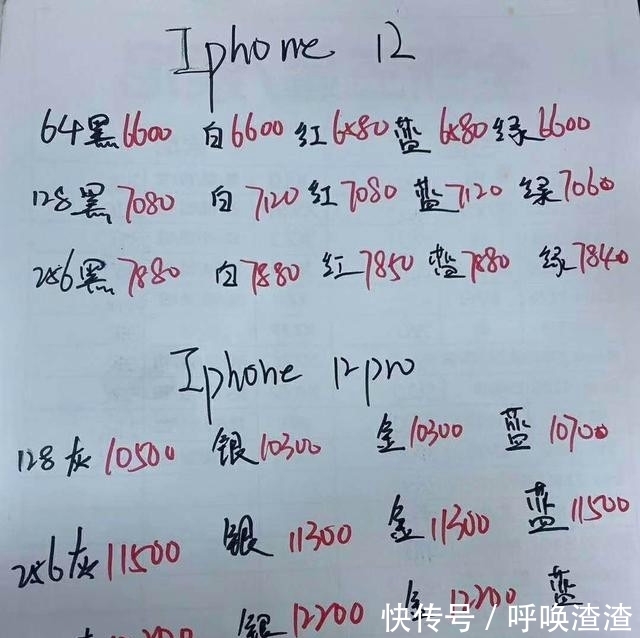 Iphone 12
64黑6600 白6600 红6580 蓝6580 绿6600
128黑7080 白7120 红7080 蓝7120 绿7060
256黑7880 白7880 红7850 蓝7880 绿7840
Iphone 12pro
128灰10500 银10300 金10300 蓝10700
256灰11500 银11300 金11300 蓝11500
银12200 金12200 蓝
快传号 / 呼唤渣渣